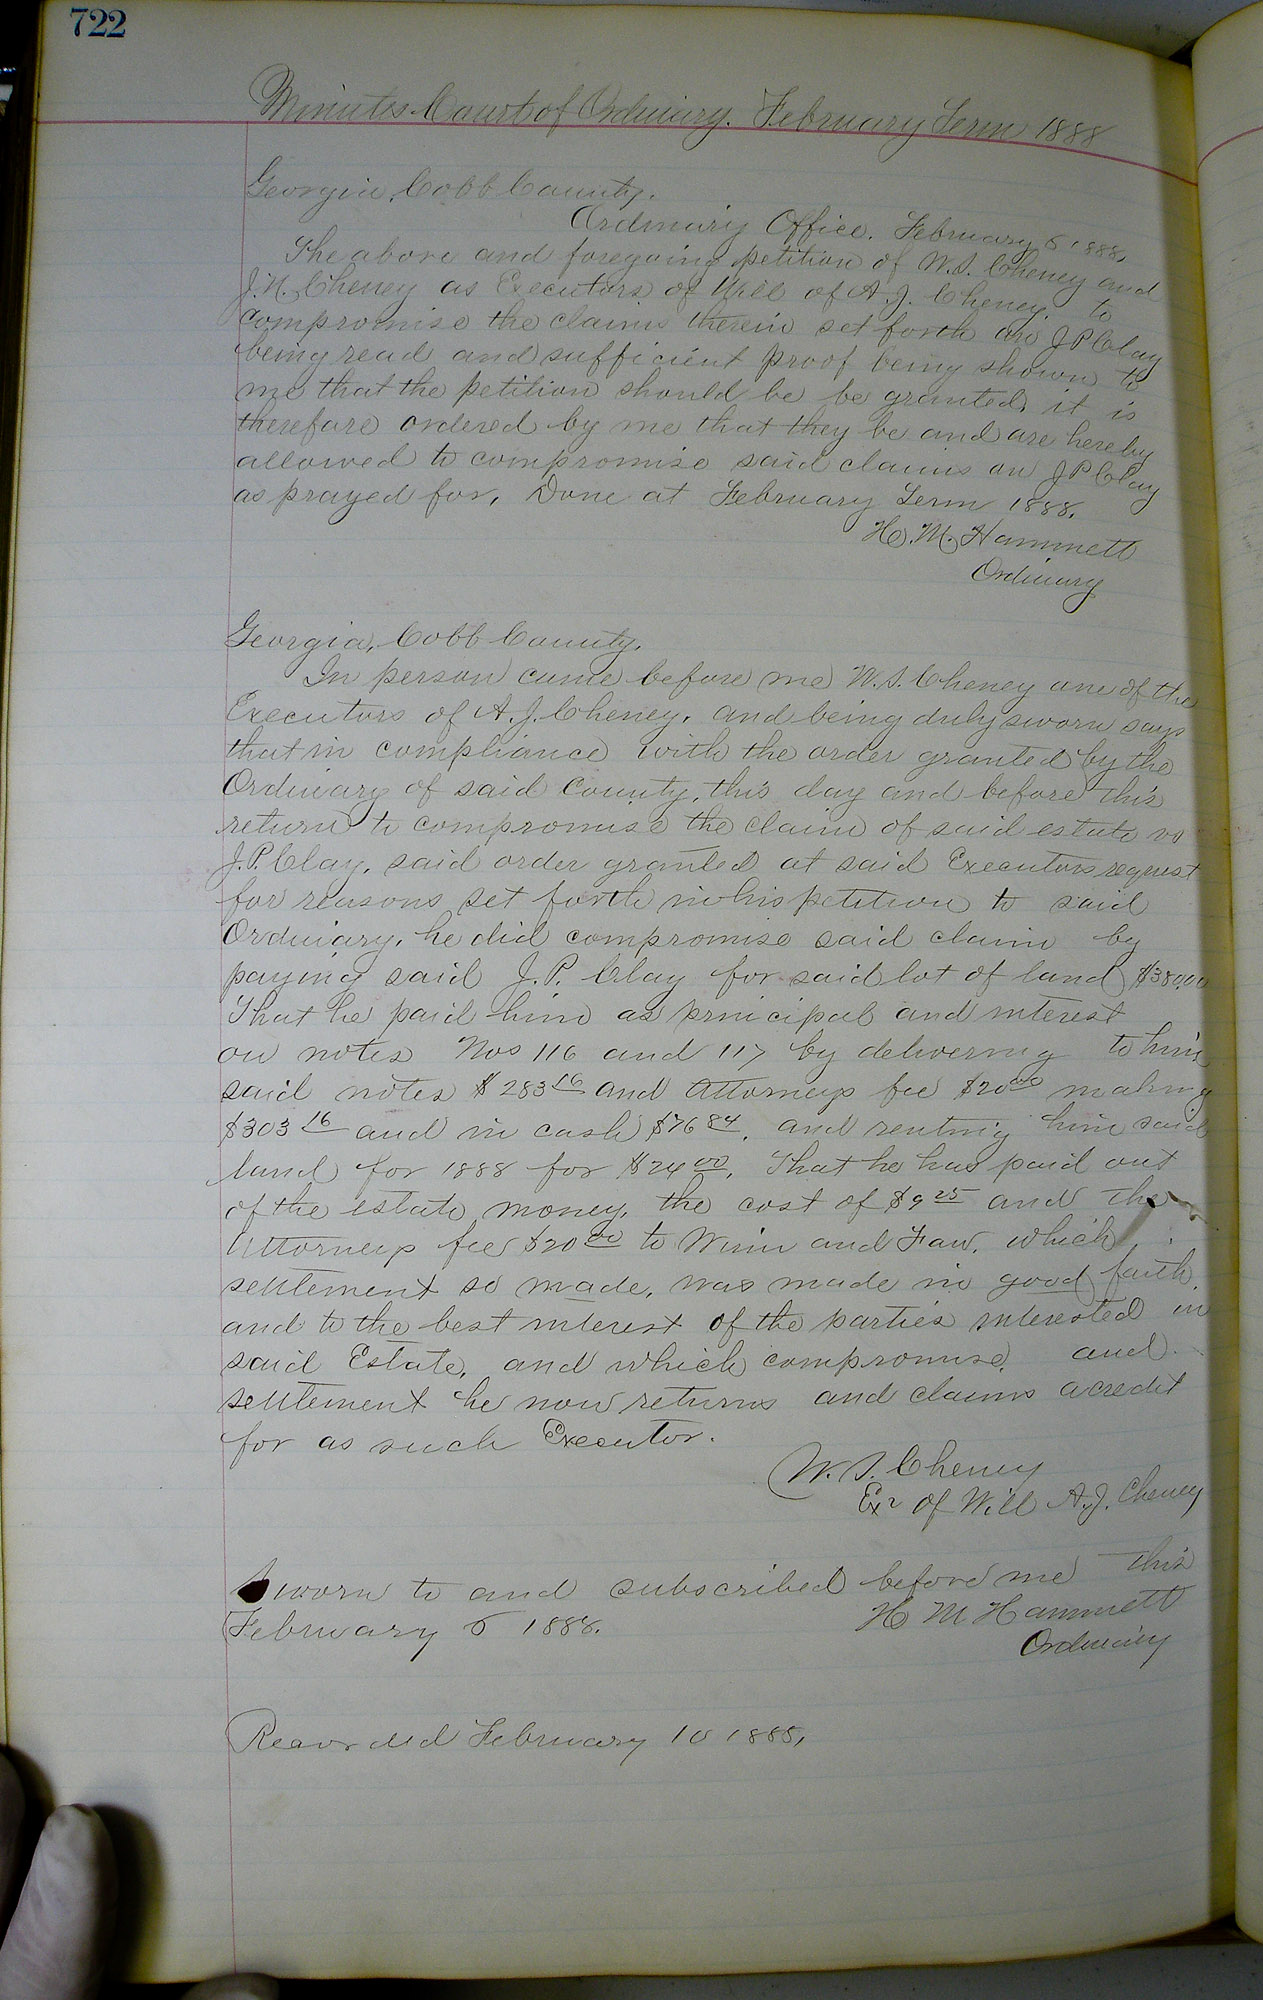 722
Minutes Court of Ordinary. February Term 1888
Georgia, Cobb County.
Ordinary Office. February 6 1888.
The above and foregoing petition of W. S. Cheney and
J. N. Cheney as Executors of Will of A. J. Cheney, to
compromise the claims therein set forth on J P Clay
being read and sufficient proof being shown to
me that the petition should be be granted, it is
therefore ordered by me that they be and are hereby
allowed to compromise said claims on J P Clay
as prayed for, Done at February Term 1888.
H. M. Hammett
Ordinary
Georgia, Cobb County.
In person came before me W. S. Cheney one of the
Executors of A. J. Cheney, and being duly sworn says
that in compliance with the order granted by the
Ordinary of said County, this day and before this
return to compromise the claim of said estate vs
J. P. Clay, said order granted at said Executors request
for reasons set forth in his petition to said
Ordinary, he did compromise said claim by
paying said J. P. Clay for said lot of land $380.00
That he paid him as principal and interest
on notes Nos 116 and 117 by delivering to him
said notes $283 16 and Attorneys fee $20 00 making
$303 16 and in cash $76 84, and renting him said
land for 1888 for $24 00. That he has paid out
of the estate money, the cost of $9 25 and the
Attorneys fee $20 00 to Winn and Faw, which
settlement so made, was made in good faith
and to the best interest of the parties interested in
said Estate, and which compromise and
settlement he now returns and claims a credit
for as such Executor.
W. S. Cheney
Exr of Will A. J. Cheney
Sworn to and subscribed before me this
February 6 1888.
H M Hammett
Ordinary
Recorded February 10 1888,